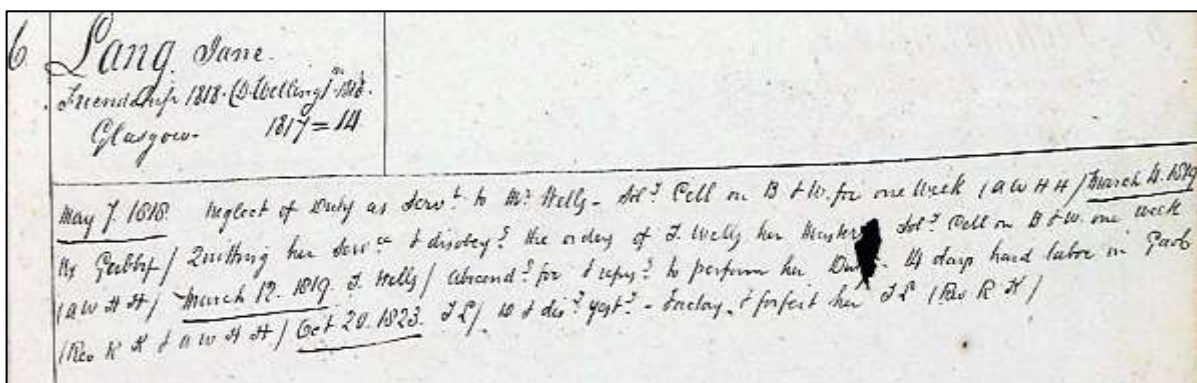 6. Lang Jane.
Friendship 1818. (D. Welling)n 1818.
Glasgow. 1817 = 14
May 7. 1818. Neglect of Duty as Servt. to Mr. Wells - Sol.y Cell on B & W. for one Week (A W H H) March 4. 1819
/ Quitting her Serv.ce & disobey.g the orders of T. Wells her Master Sol.y Cell on B & W. one week
(A W H H) March 12. 1819. T. Wells / Abscond.g for & refus.g to perform her 14 days hard labor in Gaol
(Rev R K & A W H H) Oct 20. 1823. T L / Factory, & forfeit her T L (Rev R K)